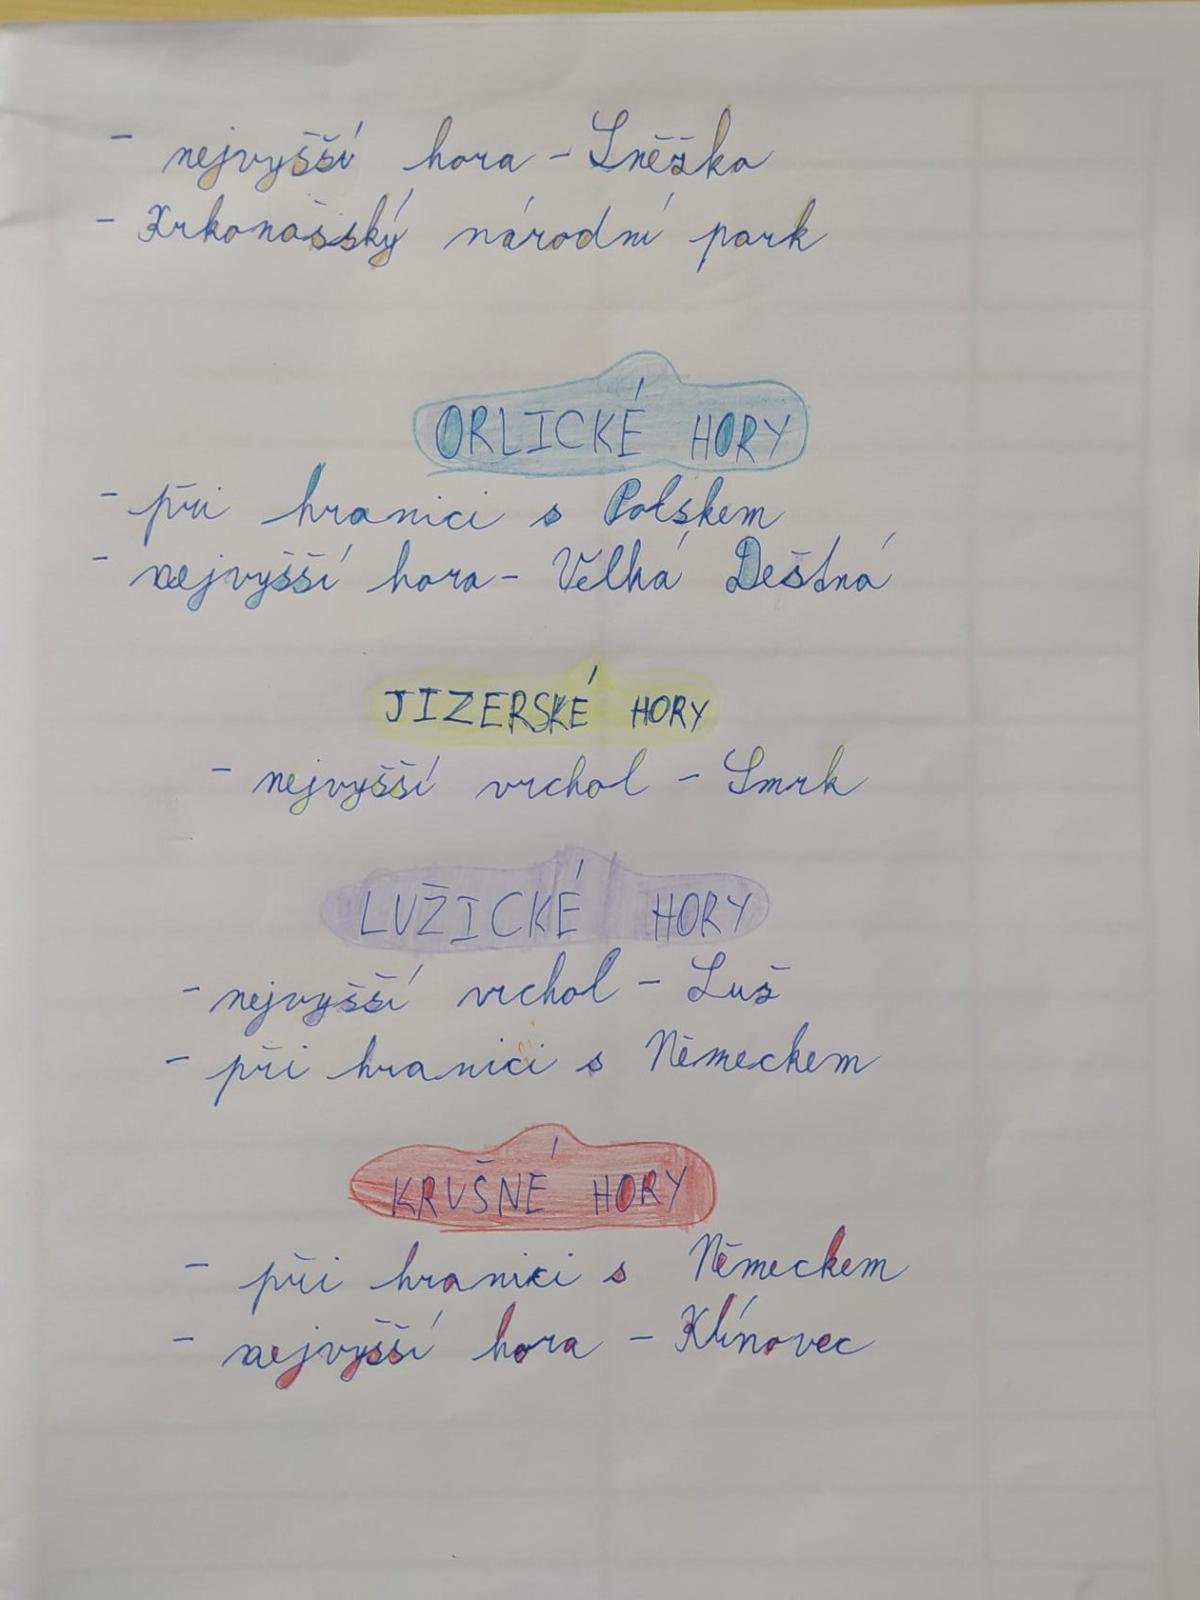 - nejvyšší hora - Sněžka
- Krkonošský národní park
ORLICKÉ HORY
- při hranici s Polskem
- nejvyšší hora - Velká Deštná
JIZERSKÉ HORY
- nejvyšší vrchol - Smrk
LUŽICKÉ HORY
- nejvyšší vrchol - Luž
- při hranici s Německem
KRUŠNÉ HORY
- při hranici s Německem
- nejvyšší hora - Klínovec